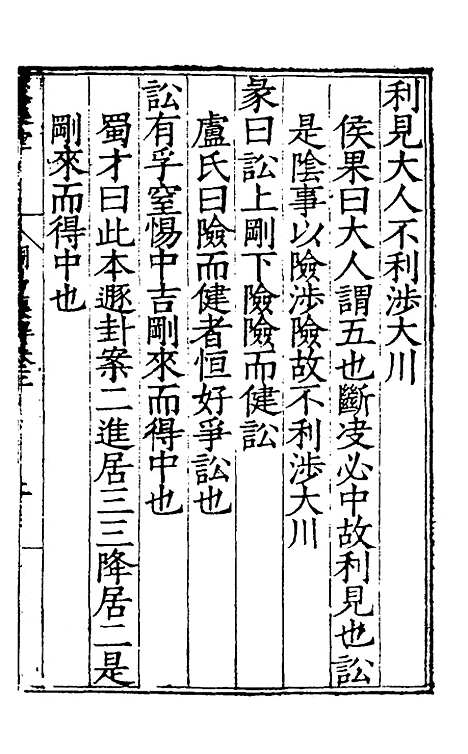 利見大人不利涉大川
侯果曰大人謂五也斷决必中故利見也訟
是陰事以險涉險故不利涉大川
彖曰訟上剛下險險而健訟
盧氏曰險而健者恒好爭訟也
訟有孚窒惕中吉剛來而得中也
蜀才曰此本遯卦案二進居三三降居二是
剛來而得中也